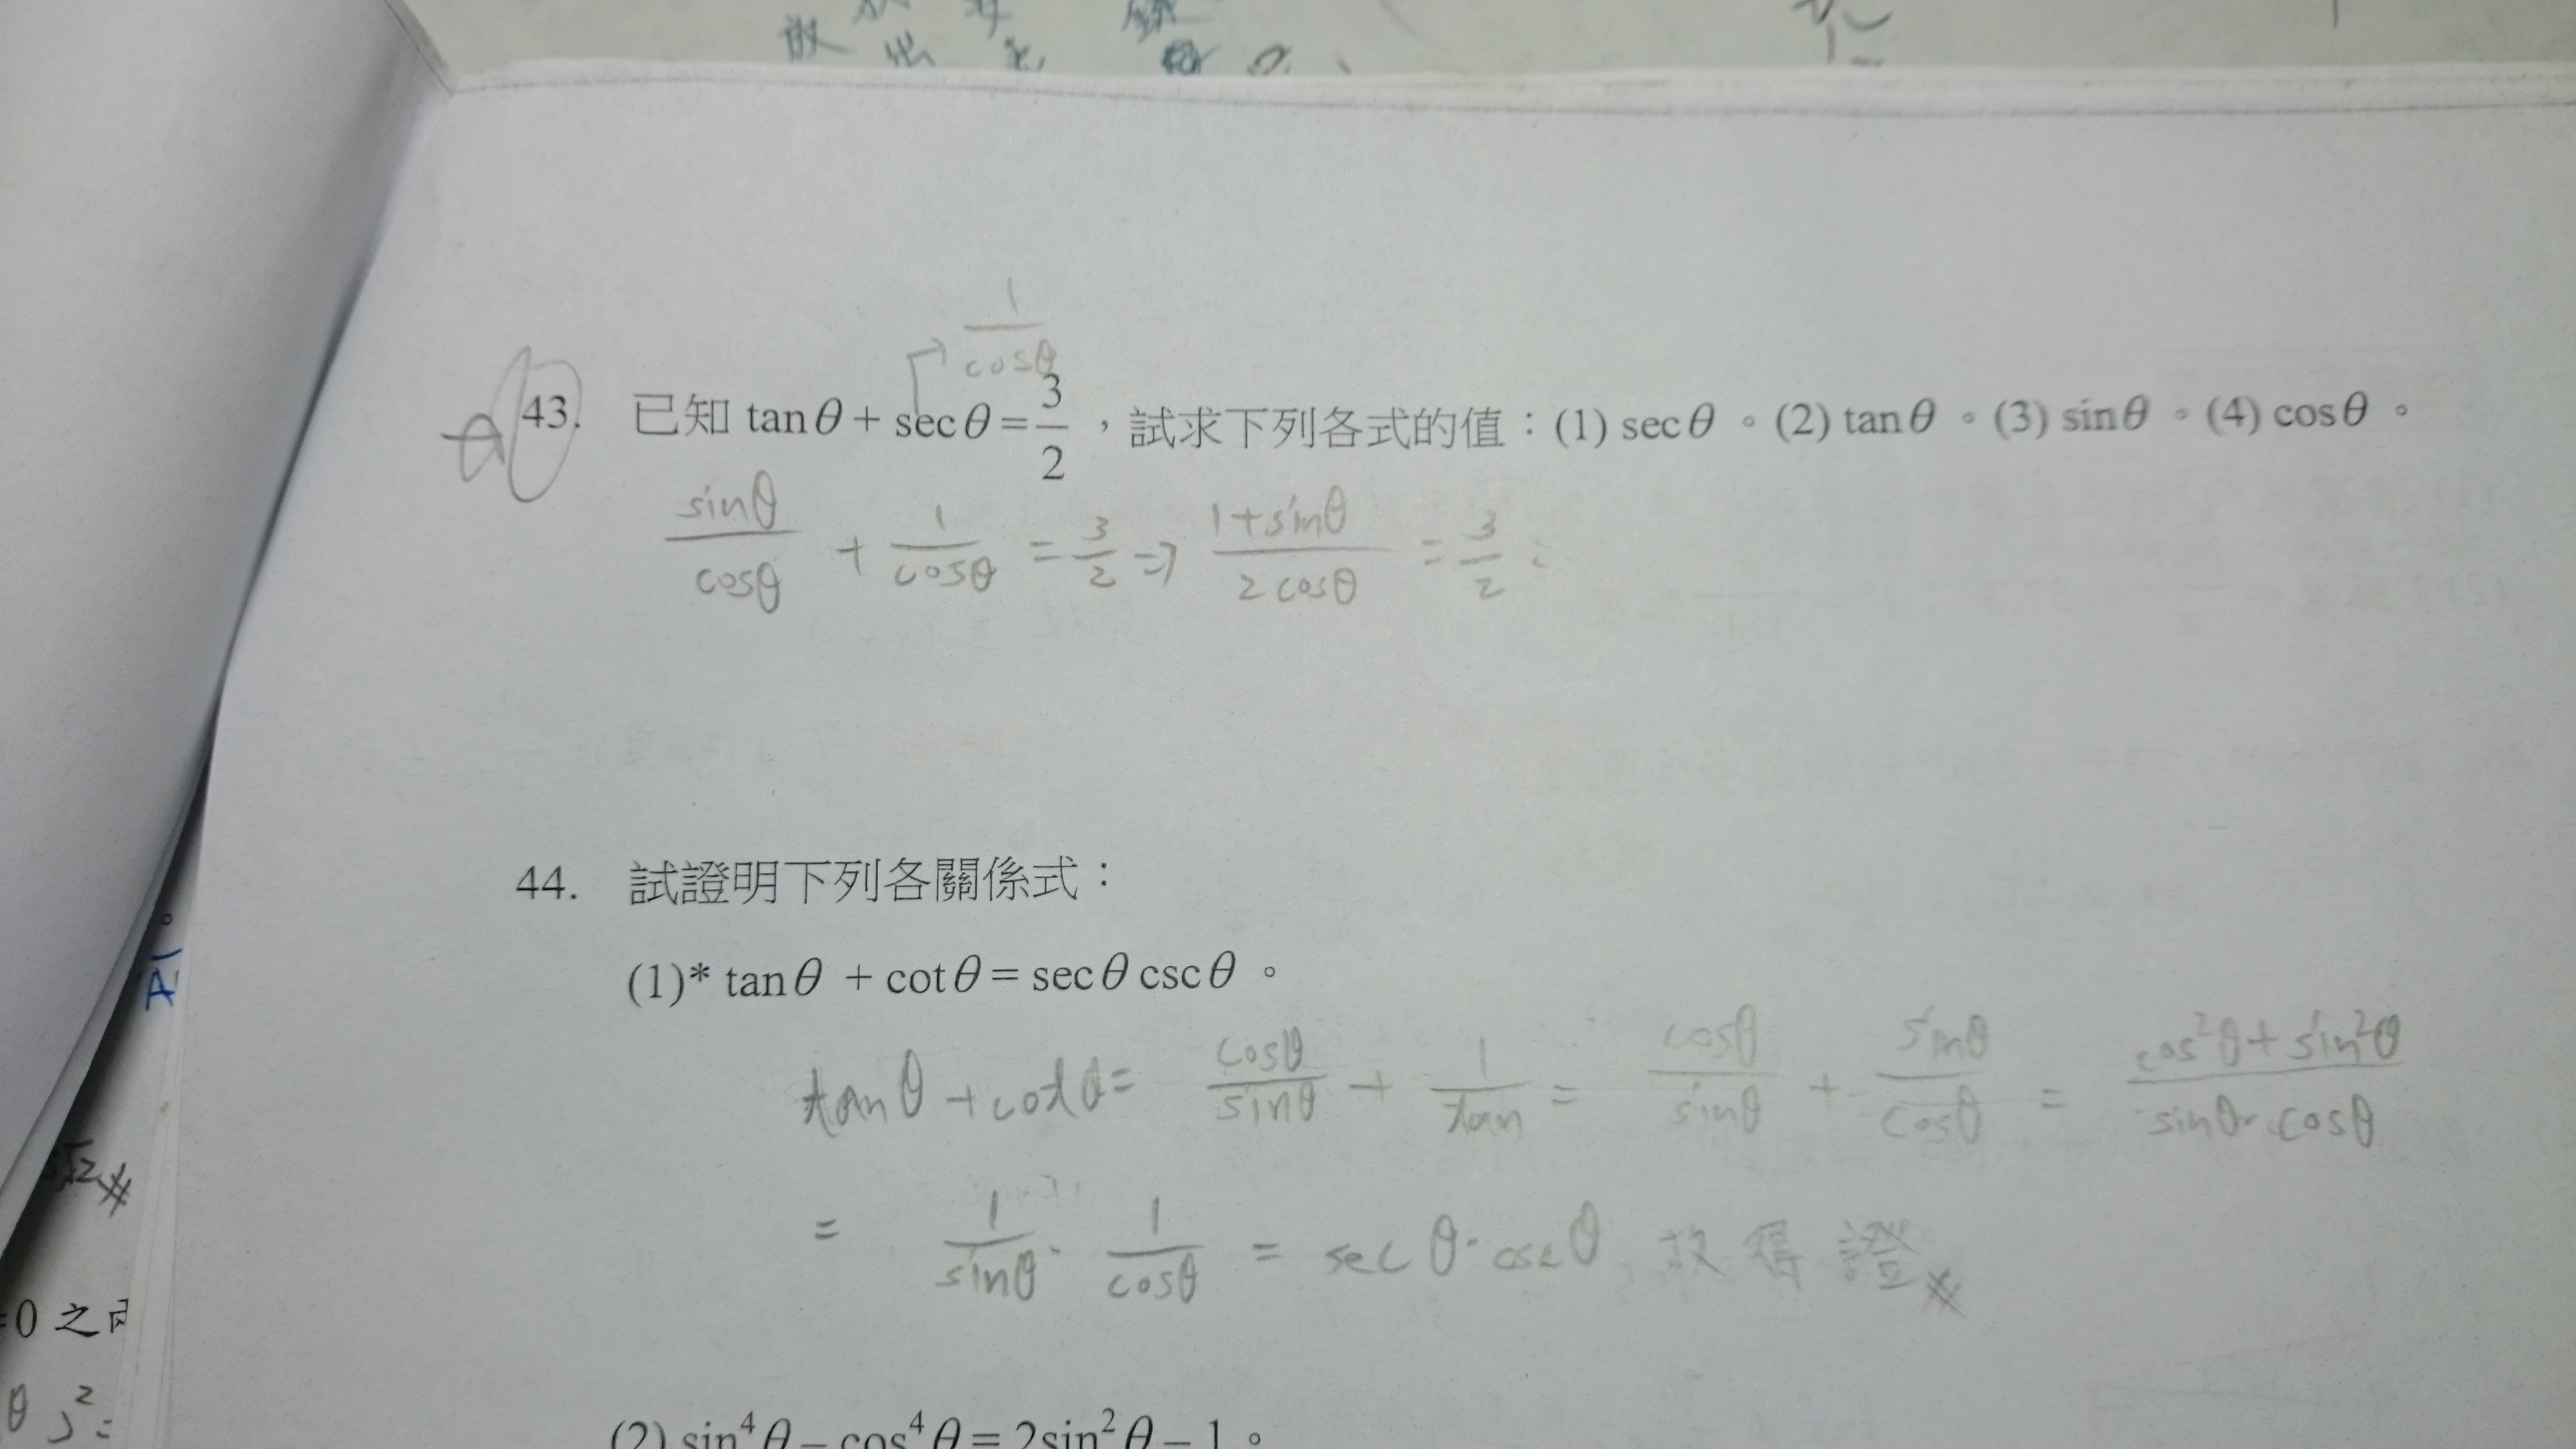 放 出 銀
1/cosθ
43. 已知 tanθ + secθ = 3/2 ，試求下列各式的值：(1) secθ 。(2) tanθ 。(3) sinθ 。(4) cosθ 。
sinθ/cosθ + 1/cosθ = 3/2 ⇒ 1+sinθ/2cosθ = 3/2
44. 試證明下列各關係式：
(1)* tanθ + cotθ = secθ cscθ 。
tanθ + cotθ = cosθ/sinθ + 1/tan = cosθ/sinθ + sinθ/cosθ = cos²θ + sin²θ/sinθ·cosθ
= 1/sinθ · 1/cosθ = secθ·cscθ 故得證
(2) sin⁴θ – cos⁴θ = 2sin²θ – 1 。
√2
=0 之
θ )²=